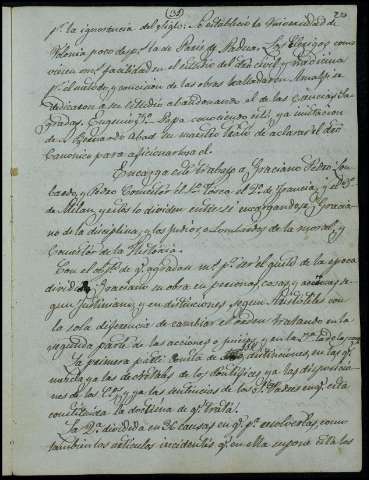 (31)
p.r la ignorancia del siglo: Se establecio la Universidad de
Bolonia poco desp.s la de Paris y Padua. Los Clerigos como
viesen más facilidad en el estudio del dro civil y medicina
p.r el metodo y concision de las obras
dedicaron a su estudio abandonando el de las Ciencias Sa-
gradas. Eugenio 3.º Papa conociendo esto, ya imitacion
de S. Bernardo Abad su maestro trató de aclarar el dro
Canonico para aficionarlos a el.
Encarga este trabajo a Graciano Pedro Lom-
bardo, y Pedro Comestor el 1.º Tosco el 2.º de Francia, y el 3.º
de Milan, y estos lo dividen entre si encargandose Gracia-
no de la disciplina, Pedro Lombardo de la moral, y
Comestor de la Historia.
Con el obj.to de q.e agradara más p.r ser el gusto de la epoca
divide Graciano su obra en personas, cosas, y acciones se-
gun Justiniano, y en distinciones segun Aristoteles con
la sola diferencia de cambiar el orden tratando en la
segunda parte de las acciones o juicios, y en la 3.ª de las cosas
La primera parte consta de distinciones, en las q.e
mezcla ya las decretales de los Pontifices, ya las disposicio-
nes de las ya las sentencias de los S.tos Padres en q.e esta
constituida la doctrina de q.e trata.
La 2.ª dividida en 36 causas en q.e p.a resolverlas, como
tambien los articulos incidentes q.e en ella supone cita los